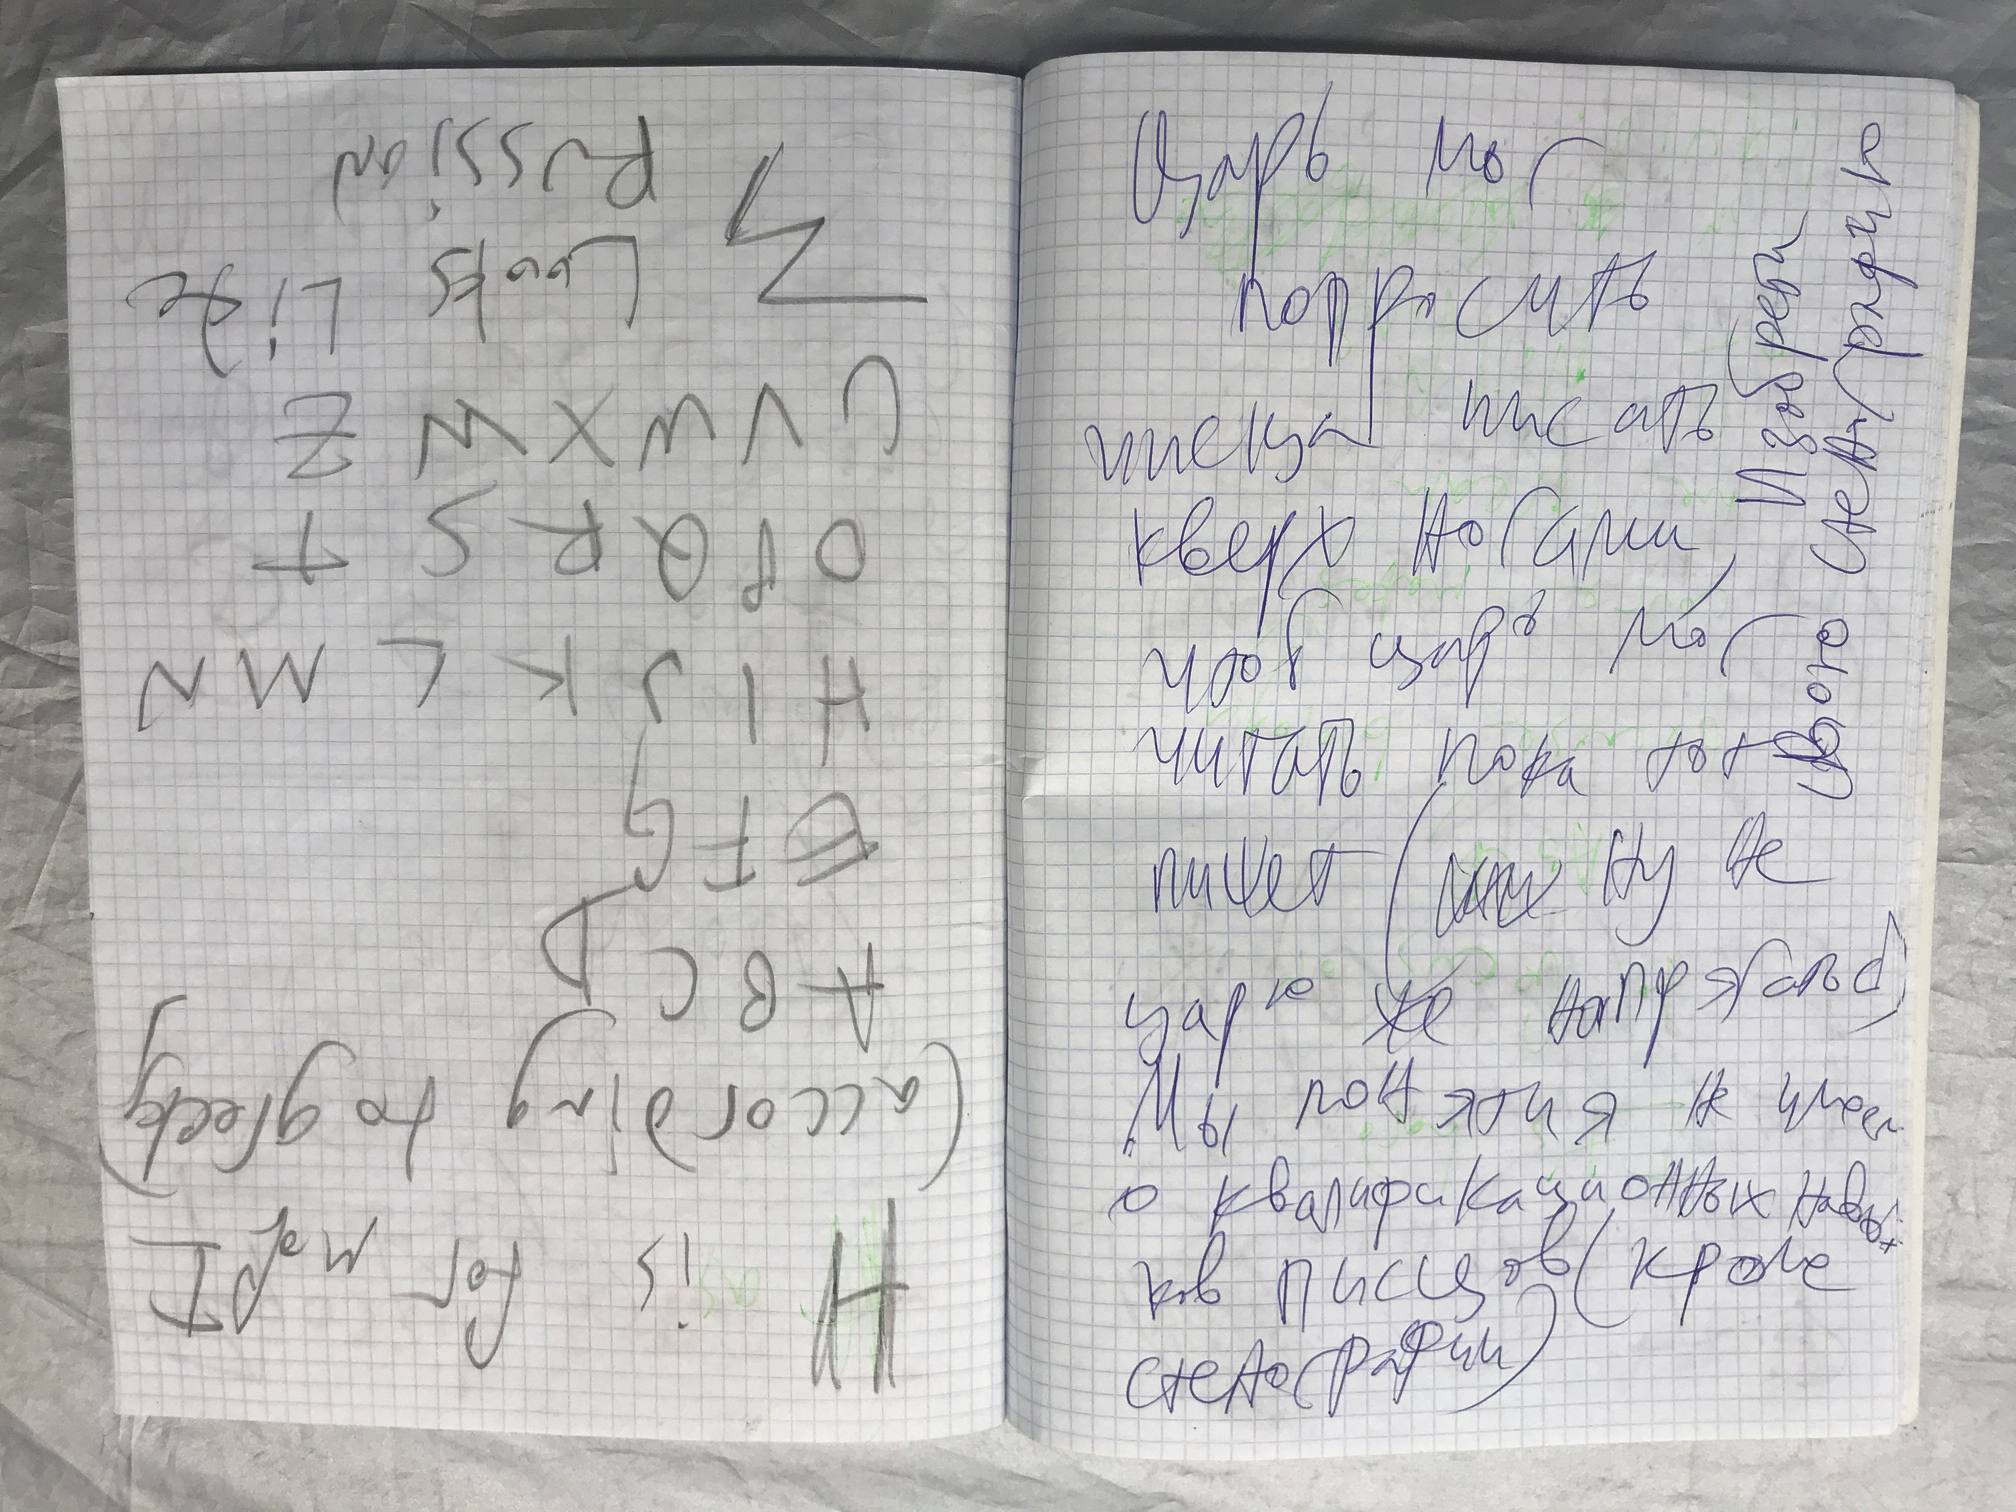 H is for
(according to greek)
A B C D
E F G
H I J K L M N
O P Q R S T
V W X Z
Looks Like
Russian
Царь мог
попросить
писца писать
кверх ногами,
чтоб царь мог
читать пока тот
пишет ( ну не
царю же напрягаться)
Мы понятия не имеем
о квалификационных навы-
ков писцов (кроме
стенографии)
Изобрети
свою стенографию